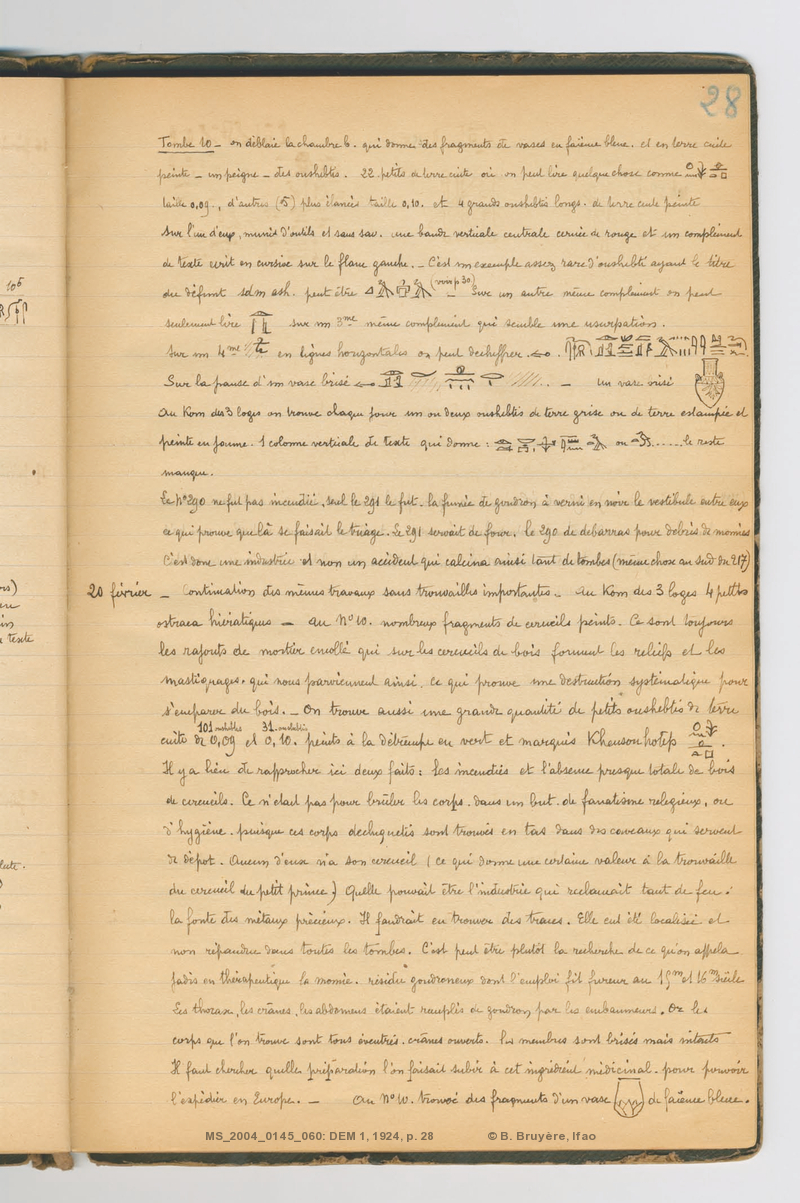 28
Tombe 10 - on déblaie la chambre b. qui donne des fragments de vases en faïence bleue. et en terre cuite
peinte - un peigne - des oushebtis. 22 petits de terre cuite où on peut lire quelque chose comme
taille 0,09., d'autres (5) plus élancés taille 0,10. et 4 grands oushebtis longs. de terre cuite peinte
Sur l'un d'eux, munis d'outils et sans sac. une bande verticale centrale cernée de rouge et un complément
de texte écrit en cursive sur le flanc gauche. - C'est un exemple assez rare d'oushebti ayant le titre
du défunt sdm ash. peut être (voir p 30) - Sur un autre même complément on peut
seulement lire sur un 3me même complément qui semble une usurpation.
Sur un 4me en lignes horizontales on peut déchiffrer.
Sur la panse d'un vase brisé - un vase brisé
Au Kom des 3 loges on trouve chaque jour un ou deux oushebtis de terre grise ou de terre estampée et
peinte en jaune. 1 colonne verticale de texte qui donne : ou ..... le reste
manque.
Le N°290 ne fut pas incendié, seul le 291 le fut. la fumée de goudron a verni en noir le vestibule entre eux
ce qui prouve que là se faisait le triage. Le 291 servait de four, le 290 de débarras pour débris de momies
C'est donc une industrie et non un accident qui calcina ainsi tant de tombes (même chose au sud du 217)
20 février - Continuation des mêmes travaux sans trouvailles importantes. - Au Kom des 3 loges 4 petits
ostraca hiératiques - au N° 10. nombreux fragments de cercueils peints. Ce sont toujours
les rajouts de mortier encollé qui sur les cercueils de bois forment les reliefs et les
masticages. qui nous parviennent ainsi. ce qui prouve une destruction systématique pour
s'emparer du bois. - On trouve aussi une grande quantité de petits oushebtis de terre
101 oushebtis 31 oushebtis
cuite de 0,09 et 0,10. peints à la détrempe en vert et marqués Khensouhotep .
Il y a lieu de rapprocher ici deux faits : Les incendies et l'absence presque totale de bois
de cercueils. Ce n'était pas pour brûler les corps. dans un but de fanatisme religieux, ou
d'hygiène. puisque ces corps déchiquetés sont trouvés en tas dans des caveaux qui servent
de dépôt. Aucun d'eux n'a son cercueil (ce qui donne une certaine valeur à la trouvaille
du cercueil du petit prince) Quelle pouvait être l'industrie qui réclamait tant de feu :
la fonte des métaux précieux. Il faudrait en trouver des traces. Elle eut été localisée et
non répandue dans toutes les tombes. C'est peut être plutôt la recherche de ce qu'on appela
jadis en thérapeutique la momie. résidu goudronneux dont l'emploi fit fureur au 15me et 16me siècle
Les thorax, les crânes, les abdomens étaient remplis de goudron par les embaumeurs. Or les
corps que l'on trouve sont tous éventrés. crânes ouverts. les membres sont brisés mais intacts
Il faut chercher quelle préparation l'on faisait subir à cet ingrédient médicinal. pour pouvoir
l'expédier en Europe. - Au N° 10. trouvé des fragments d'un vase de faïence bleue.
MS_2004_0145_060: DEM 1, 1924, p. 28 © B. Bruyère, Ifao